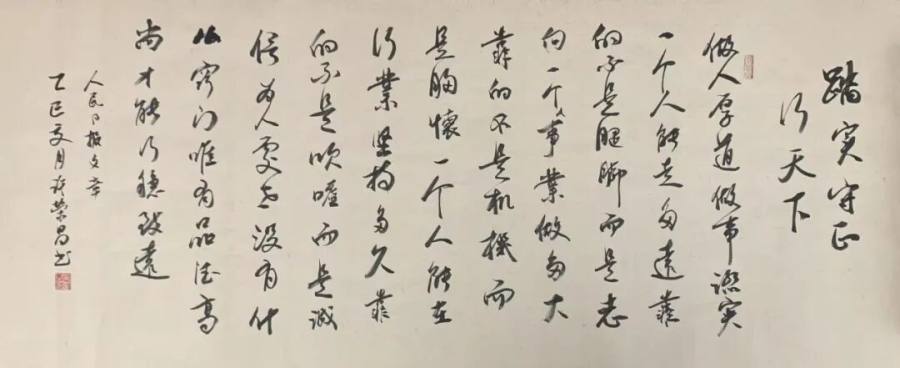 踏实守正
行天下
做人厚道做事实
一个人能走多遠靠
的不是腿脚而是志
向一个人事業做多大
靠的不是机機而
是胸懷一个人能在
行業坚持多久靠
的不是吹嘘而是诚
信为人處世没有什
么窍门唯有品德高
尚才能行穏致遠
人民日报文章
乙巳夏月荣昌书